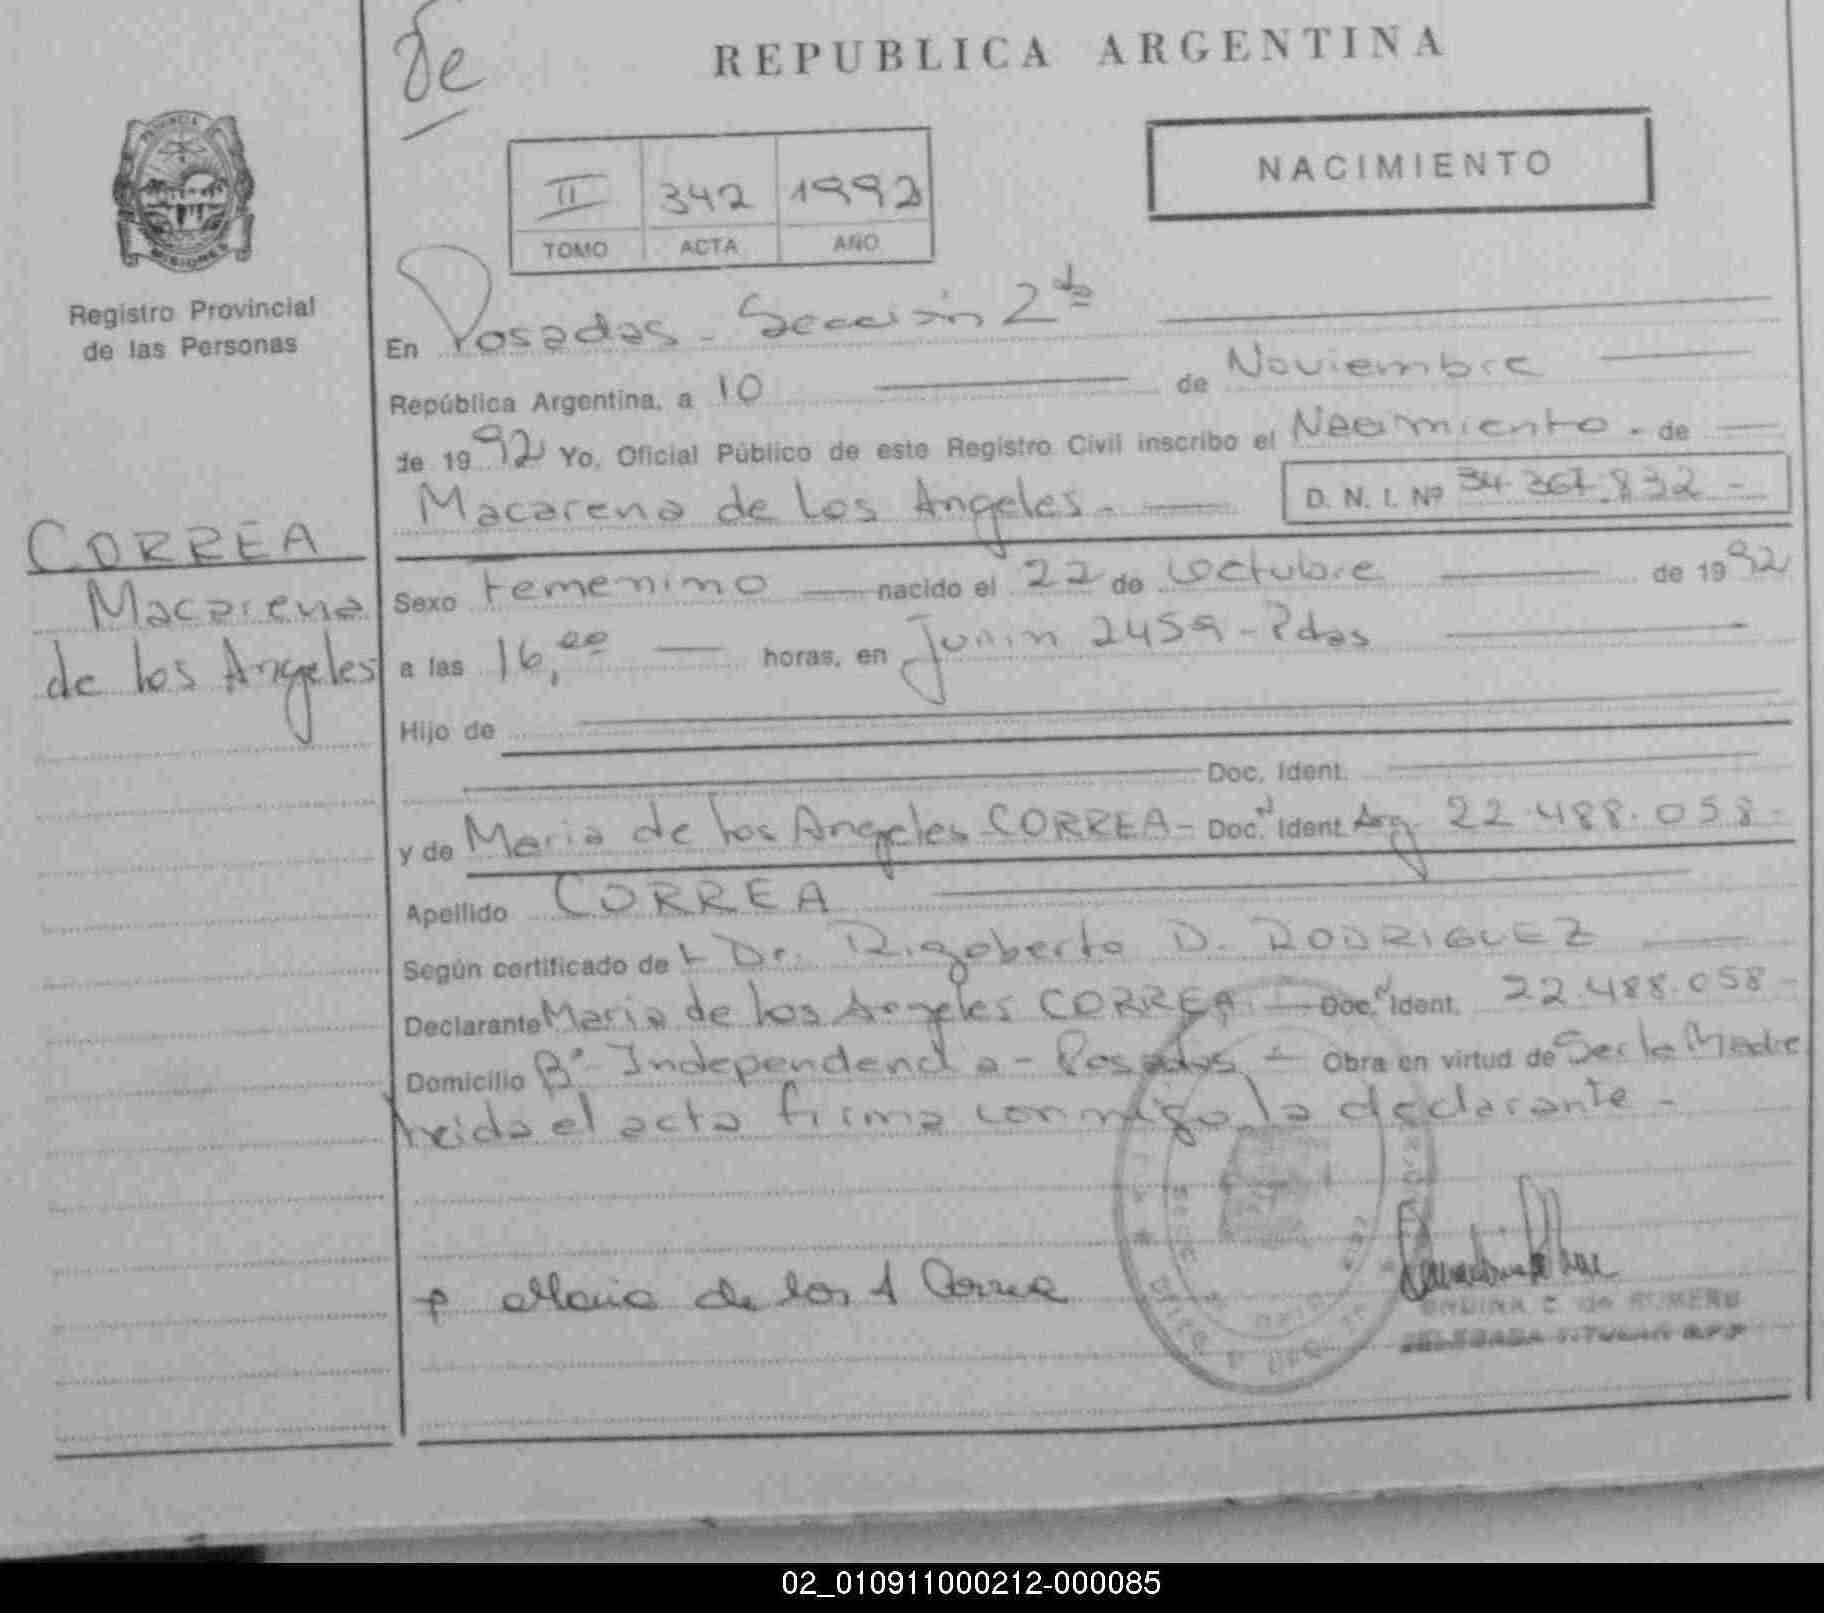 De
REPUBLICA ARGENTINA
NACIMIENTO
II 342 1992
TOMO ACTA AÑO
PROVINCIA
MISIONES
Registro Provincial
de las Personas
En Posadas - Sección 2da
República Argentina, a 10 de Noviembre
de 1992 Yo, Oficial Público de este Registro Civil inscribo el Nacimiento - de
Macarena de los Angeles - D. N. I. Nº 34.367.832 -
CORREA
Macarena
de los Angeles
Sexo Femenino nacido el 22 de Octubre de 1992
a las 16,00 horas, en Junin 2459 - Pdas
Hijo de
Doc. Ident.
y de Maria de los Angeles CORREA - Doc. Ident. Arg. 22.488.058 -
Apellido CORREA
Según certificado del Dr. Rigoberto D. RODRIGUEZ
Declarante Maria de los Angeles CORREA - Doc. Ident. 22.488.058 -
Domicilio Bº Independencia - Posadas - Obra en virtud de Ser la Madre
Leida el acta firma conmigo la declarante -
Maria de los A Correa
ONDINA C. de ROMERO
DELEGADA TITULAR R.P.P
02_010911000212-000085